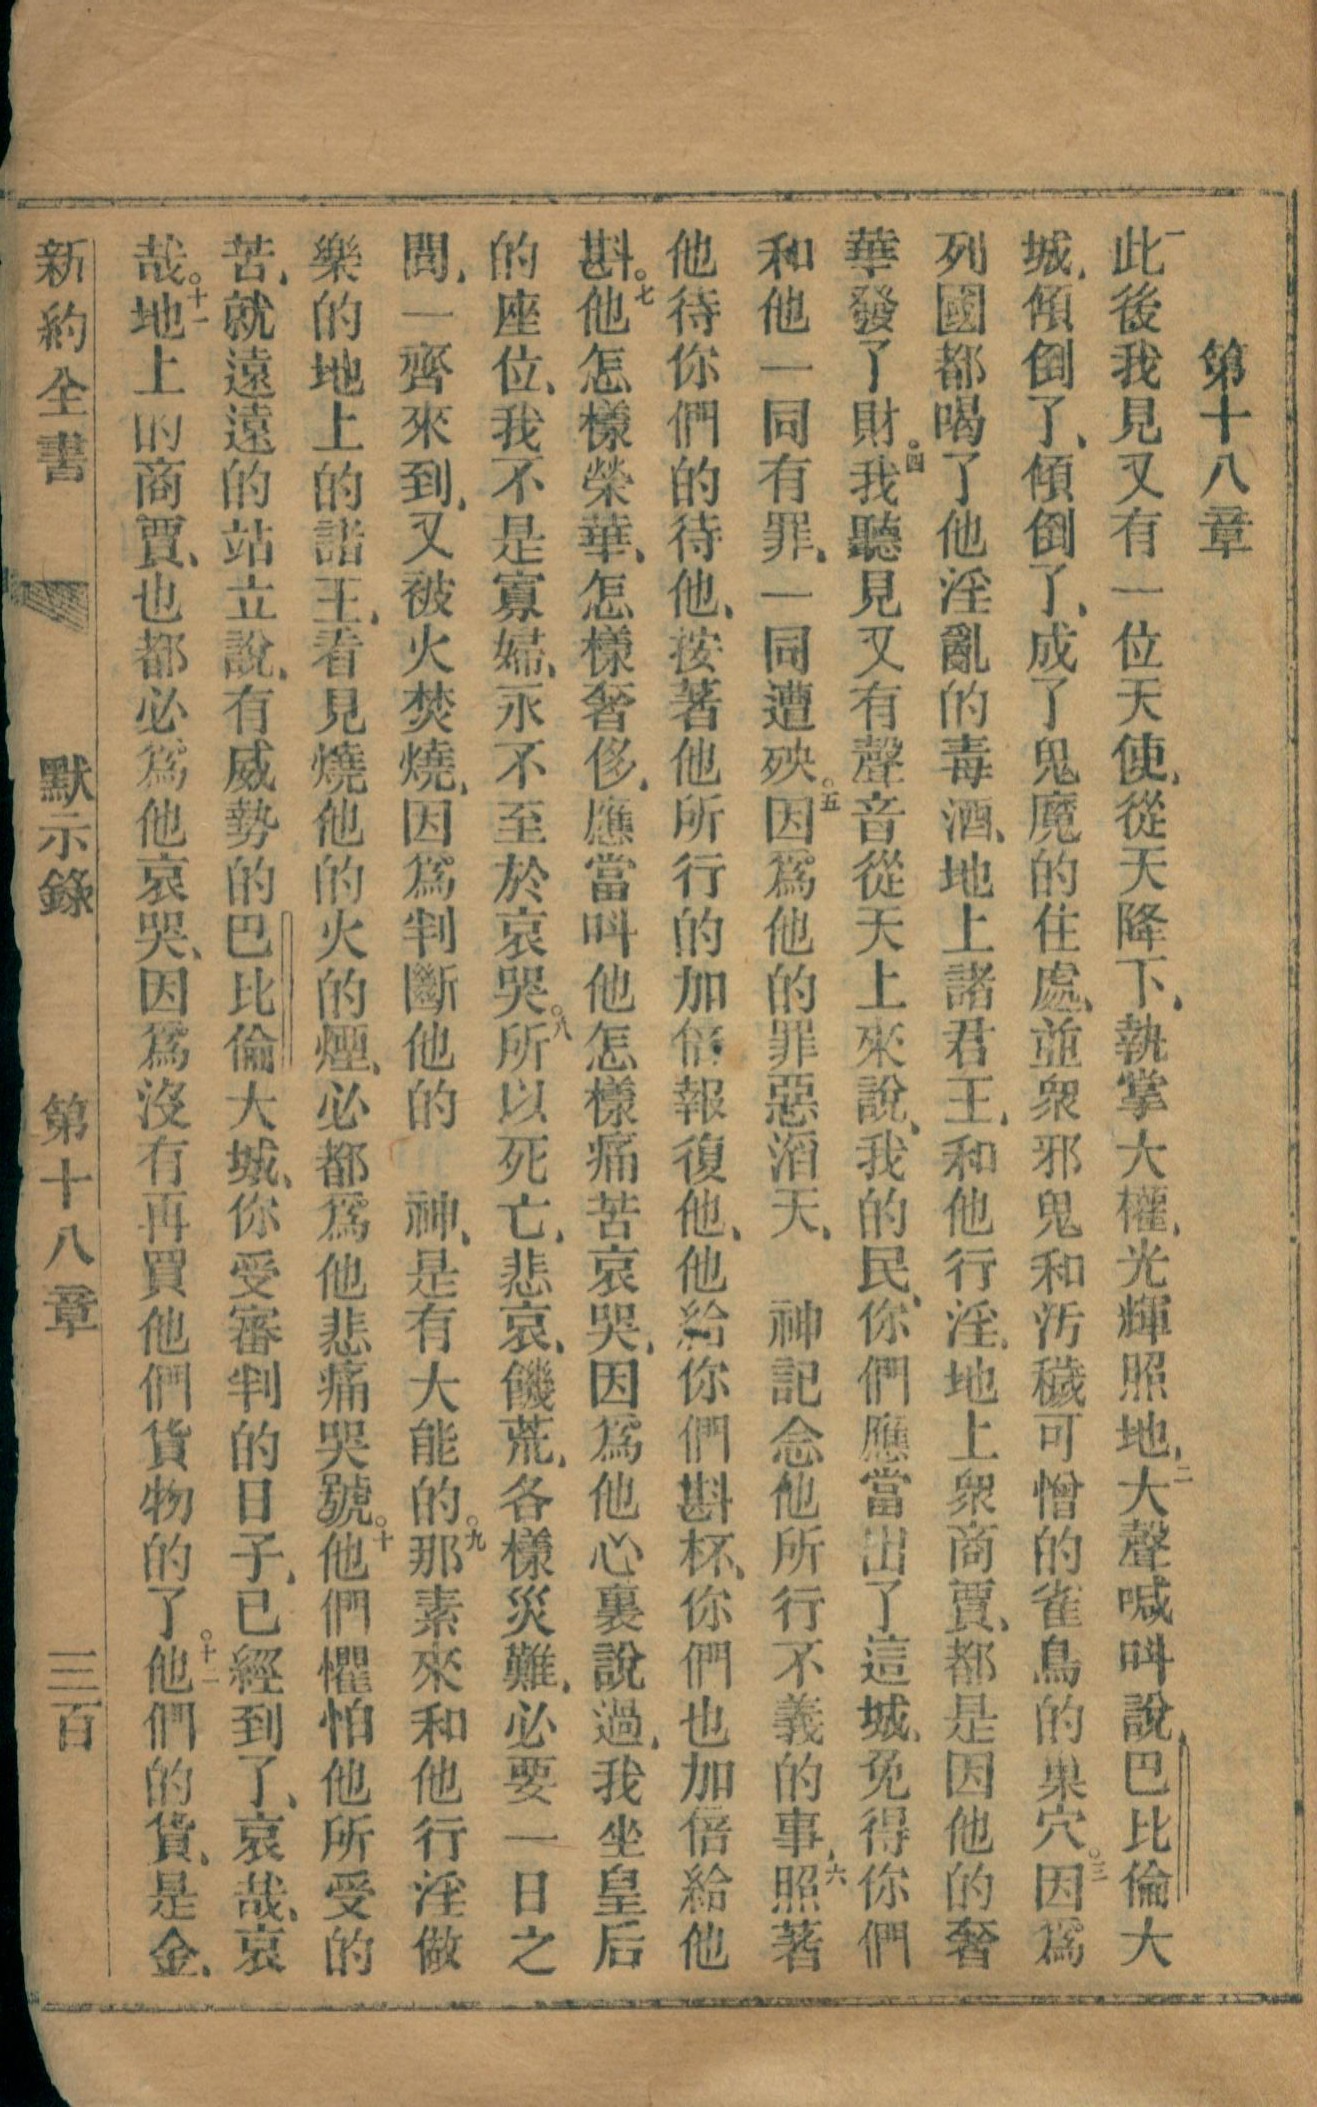 第十八章
一此後我見又有一位天使、從天降下、執掌大權、光輝照地、二大聲喊叫說、巴比倫大
城、傾倒了、傾倒了、成了鬼魔的住處、並衆邪鬼和汚穢可憎的雀鳥的巢穴。三因爲
列國都喝了他淫亂的毒酒、地上諸君王、和他行淫、地上衆商賈、都是因他的奢
華發了財。四我聽見又有聲音從天上來說、我的民、你們應當出了這城、免得你們
和他一同有罪、一同遭殃。五因爲他的罪惡滔天、　神記念他所行不義的事、六照著
他待你們的待他、按著他所行的加倍報復他、他給你們斟杯、你們也加倍給他
斟。七他怎樣榮華、怎樣奢侈、應當叫他怎樣痛苦哀哭、因爲他心裏說過、我坐皇后
的座位、我不是寡婦、永不至於哀哭。八所以死亡、悲哀、饑荒、各樣災難、必要一日之
間、一齊來到、又被火焚燒、因爲判斷他的　神、是有大能的。九那素來和他行淫做
樂的地上的諸王、看見燒他的火的煙、必都爲他悲痛哭號。十他們懼怕他所受的
苦、就遠遠的站立說、有威勢的巴比倫大城、你受審判的日子、已經到了、哀哉、哀
哉。十一地上的商賈、也都必爲他哀哭、因爲沒有再買他們貨物的了。十二他們的貨、是金、
新約全書　默示錄　第十八章　三百